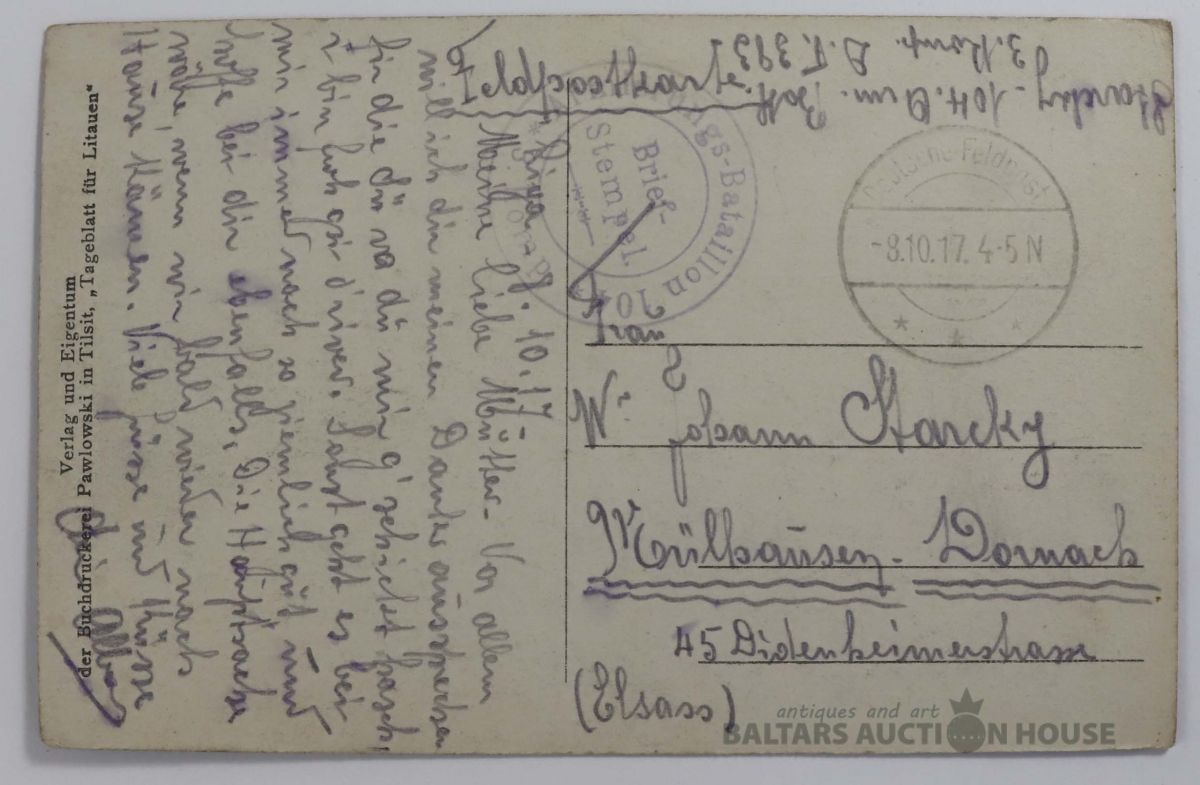 Verlag und Eigentum
der Buchdruckerei Pawlowski in Tilsit, „Tageblatt für Litauen“
Starcky 10 Feldpost
3. Komp. D. F. 393
10.17.
Meine liebe Mutter. Vor allem
will ich dir meinen Dank aussprechen
für die du mir g'schickt hasch,
bin froh Sonst geht es bei
mir immer noch so ziemlich gut und
hoffe bei dir ebenfalls, die Hauptsache
wäre, wenn wir bald wieder nach
Hause kämen. Viele Grüsse und Küsse
Brief-
Stempel.
gs-Bataillon 10
Deutsche Feldpost
-8.10.17. 4-5 N
Frau
Wᵉ Johann Starcky
Mülhausen-Dornach
45 Didenheimerstrasse
(Elsass)
antiques and art
BALTARS AUCTION HOUSE